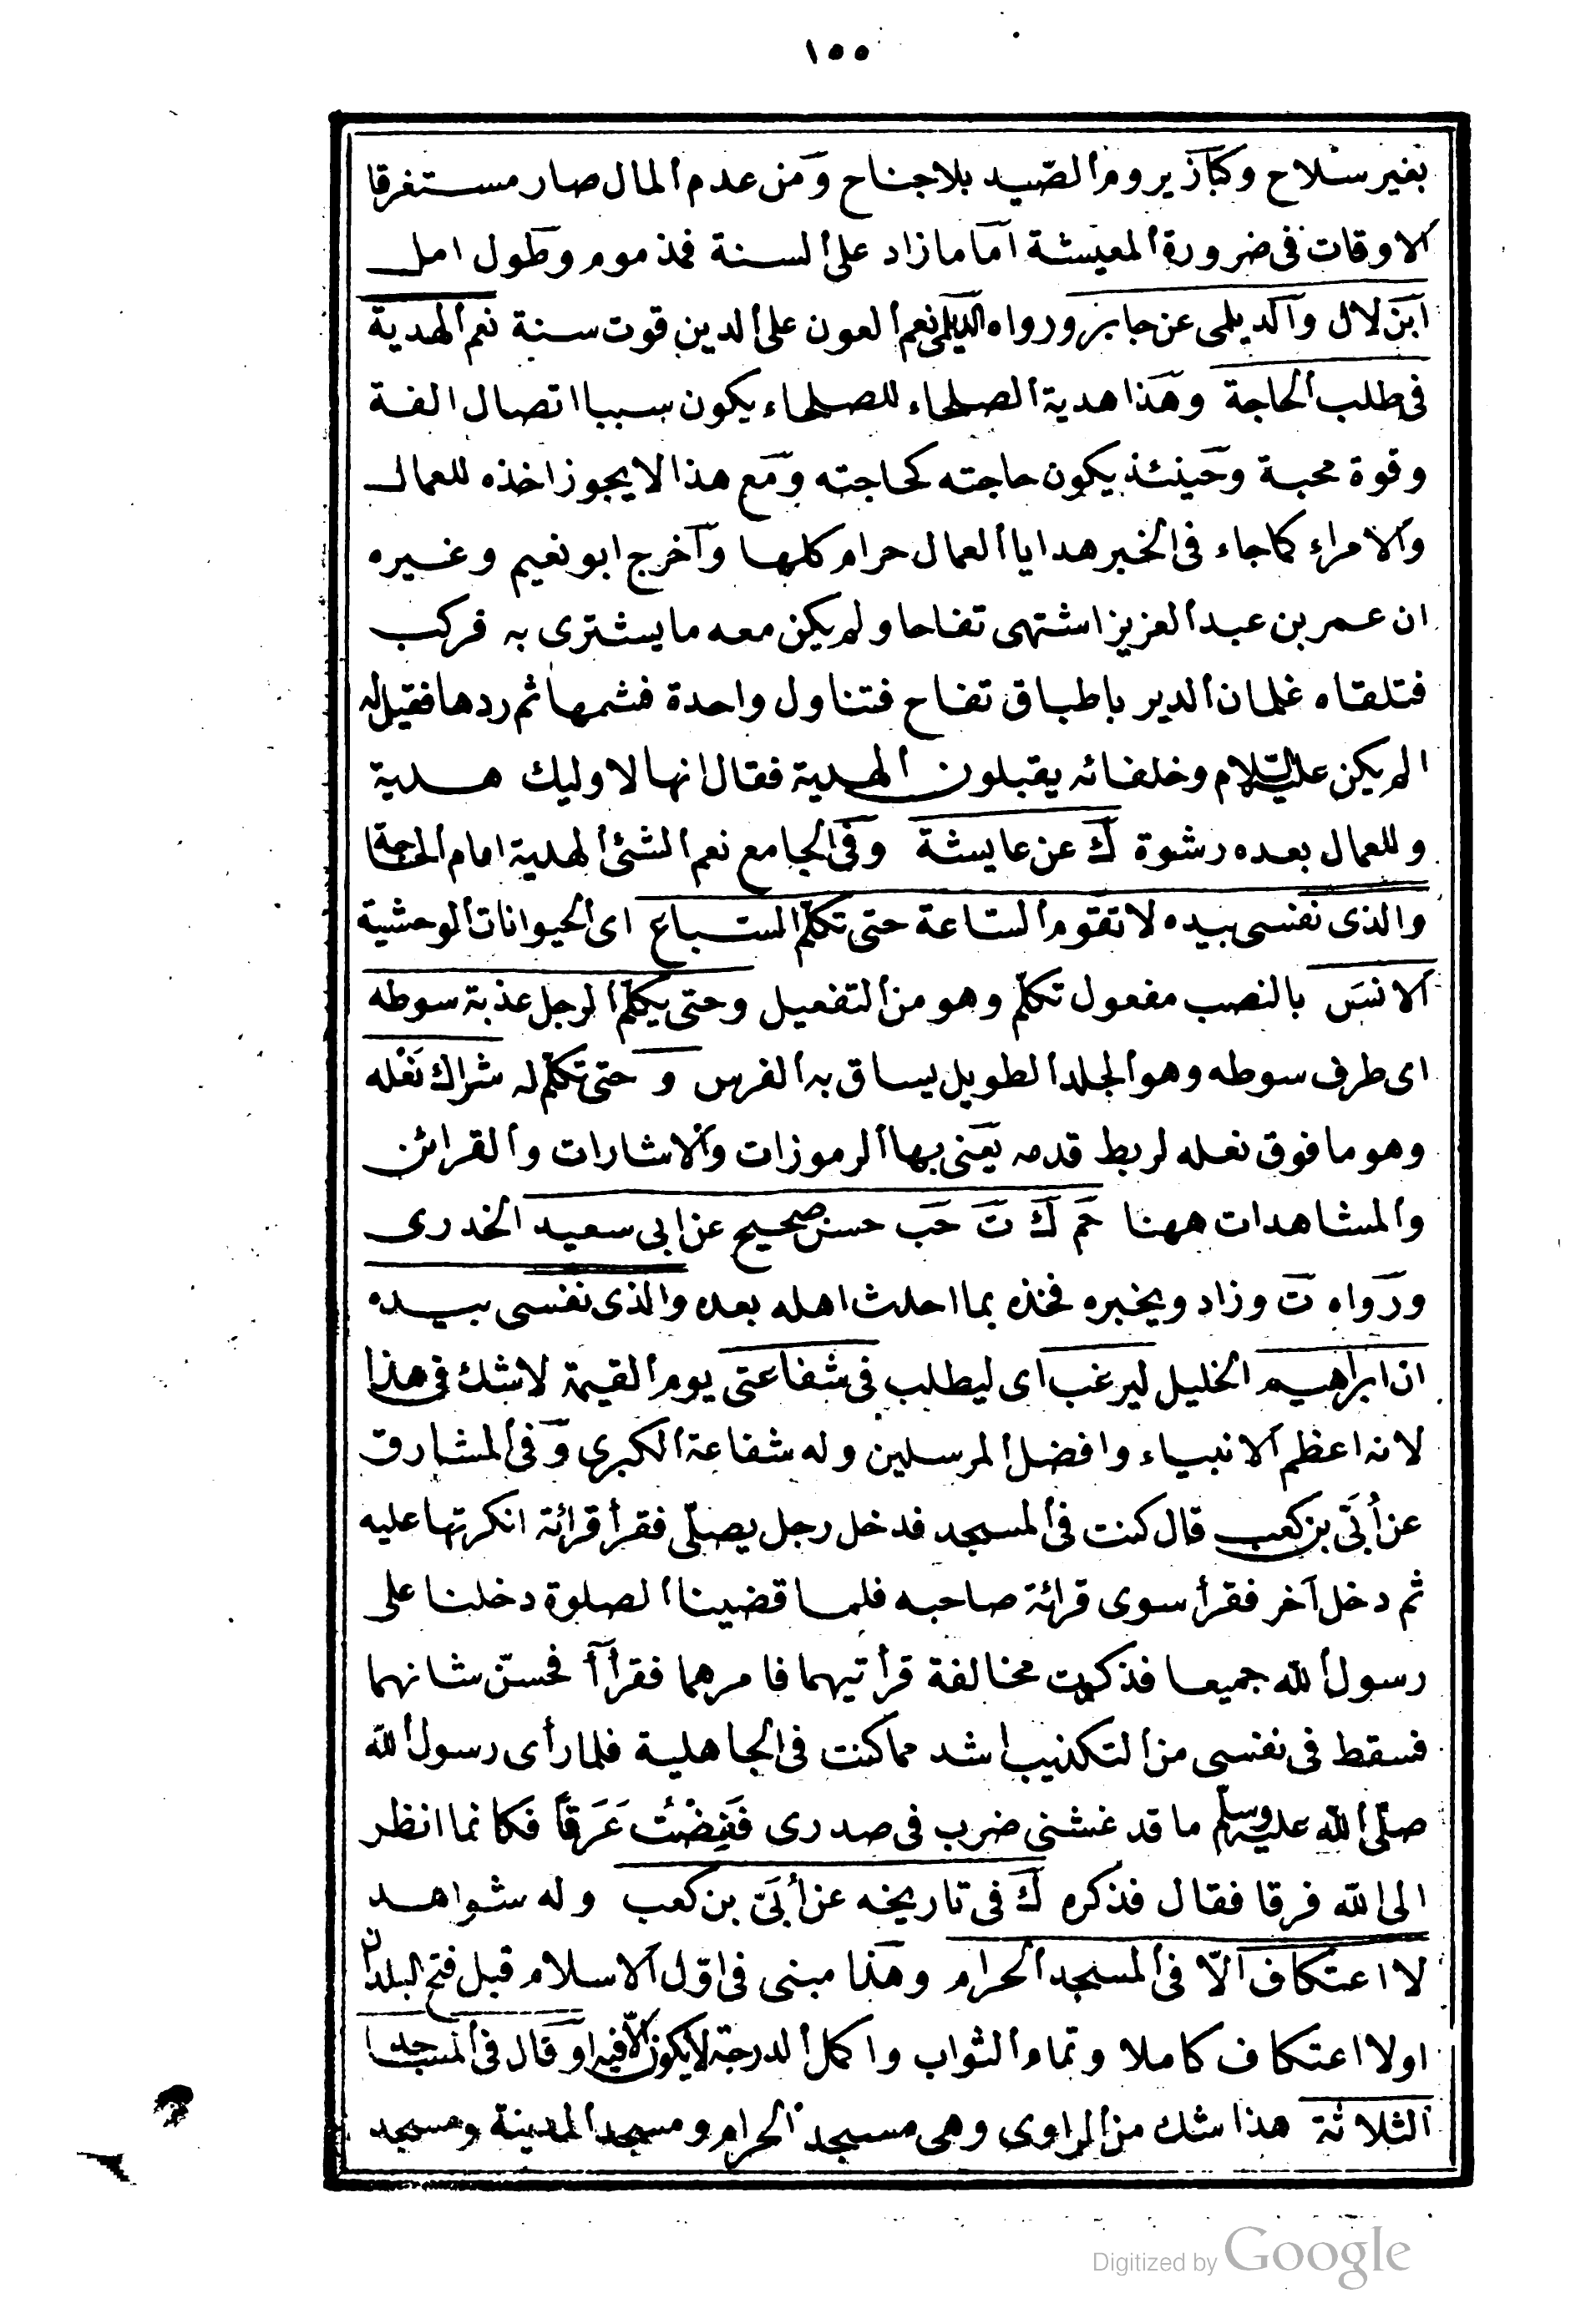 ١٥٥
بغير سلاح وكباز يروم الصّيد بلا جناح ومن عدم المال صار مستغرقا
الاوقات فى ضرورة المعيشة اما ما زاد على السنة فمذموم وطول امل
ابن لال والديلمى عن جابر ورواه الديلمى نعم العون على الدين قوت سنة نعم الهدية
فى طلب الحاجة وهذا هدية الصلحاء للصلحاء يكون سببا اتصال الفة
وقوة محبة وحينئذ يكون حاجته كحاجته ومع هذا لا يجوز اخذه للعمال
والامراء كما جاء فى الخبر هدايا العمال حرام كلها واخرج ابو نعيم وغيره
ان عمر بن عبد العزيز اشتهى تفاحا ولم يكن معه ما يشترى به فركب
فتلقاه غلمان الدير باطباق تفاح فتناول واحدة فشمها ثم ردها فقيل له
الم يكن عليه السّلام وخلفائه يقبلون الهدية فقال انها لاوليك هدية
وللعمال بعده رشوة ك عن عايشة وفى الجامع نعم الشئ الهدية امام الحاجة
والذى نفسى بيده لا تقوم السّاعة حتى تكلّم السّباع اى الحيوانات الموحشية
الانس بالنصب مفعول تكلّم وهو من التفعيل وحتى يكلّم الرجل عذبة سوطه
اى طرف سوطه وهو الجلد الطويل يساق به الفرس و حتى تكلّم له شراك نَعْله
وهو ما فوق نعله لربط قدمه يعنى بها الرموزات والاشارات والقرائن
والمشاهدات ههنا حم ك ت حب حسن صحيح عن ابى سعيد الخدرى
ورواه ت وزاد ويخبره فخذه بما احدث اهله بعده والذى نفسى بيده
ان ابراهيم الخليل ليرغب اى ليطلب فى شفاعتى يوم القيمة لا شك فى هذا
لانه اعظم الانبياء وافضل المرسلين وله شفاعة الكبرى وفى المشارق
عن أُبَىّ بن كعب قال كنت فى المسجد فدخل رجل يصلّى فقرأ قرائة انكرتها عليه
ثم دخل آخر فقرأ سوى قرائة صاحبه فلما قضينا الصلوة دخلنا على
رسول الله جميعا فذكرت مخالفة قرأتيهما فامرهما فقرأآ فحسّن شانهما
فسقط فى نفسى من التكذيب اشد مما كنت فى الجاهلية فلما رأى رسول الله
صلّى الله عليه وسلّم ما قد غشنى ضرب فى صدرى فَفِضْتُ عَرَقاً فكانما انظر
الى الله فرقا فقال فذكره ك فى تاريخه عن أبىّ بن كعب وله شواهد
لا اعتكاف الّا فى المسجد الحرام وهذا مبنى فى اوّل الاسلام قبل فتح البلدان
اولا اعتكاف كاملا وتمام الثواب واكمل الدرجة لا يكون الّا فيه او قال فى المساجد
الثلاثة هذا شك من الراوى وهى مسجد الحرام ومسجد المدينة ومسجد
Digitized by Google